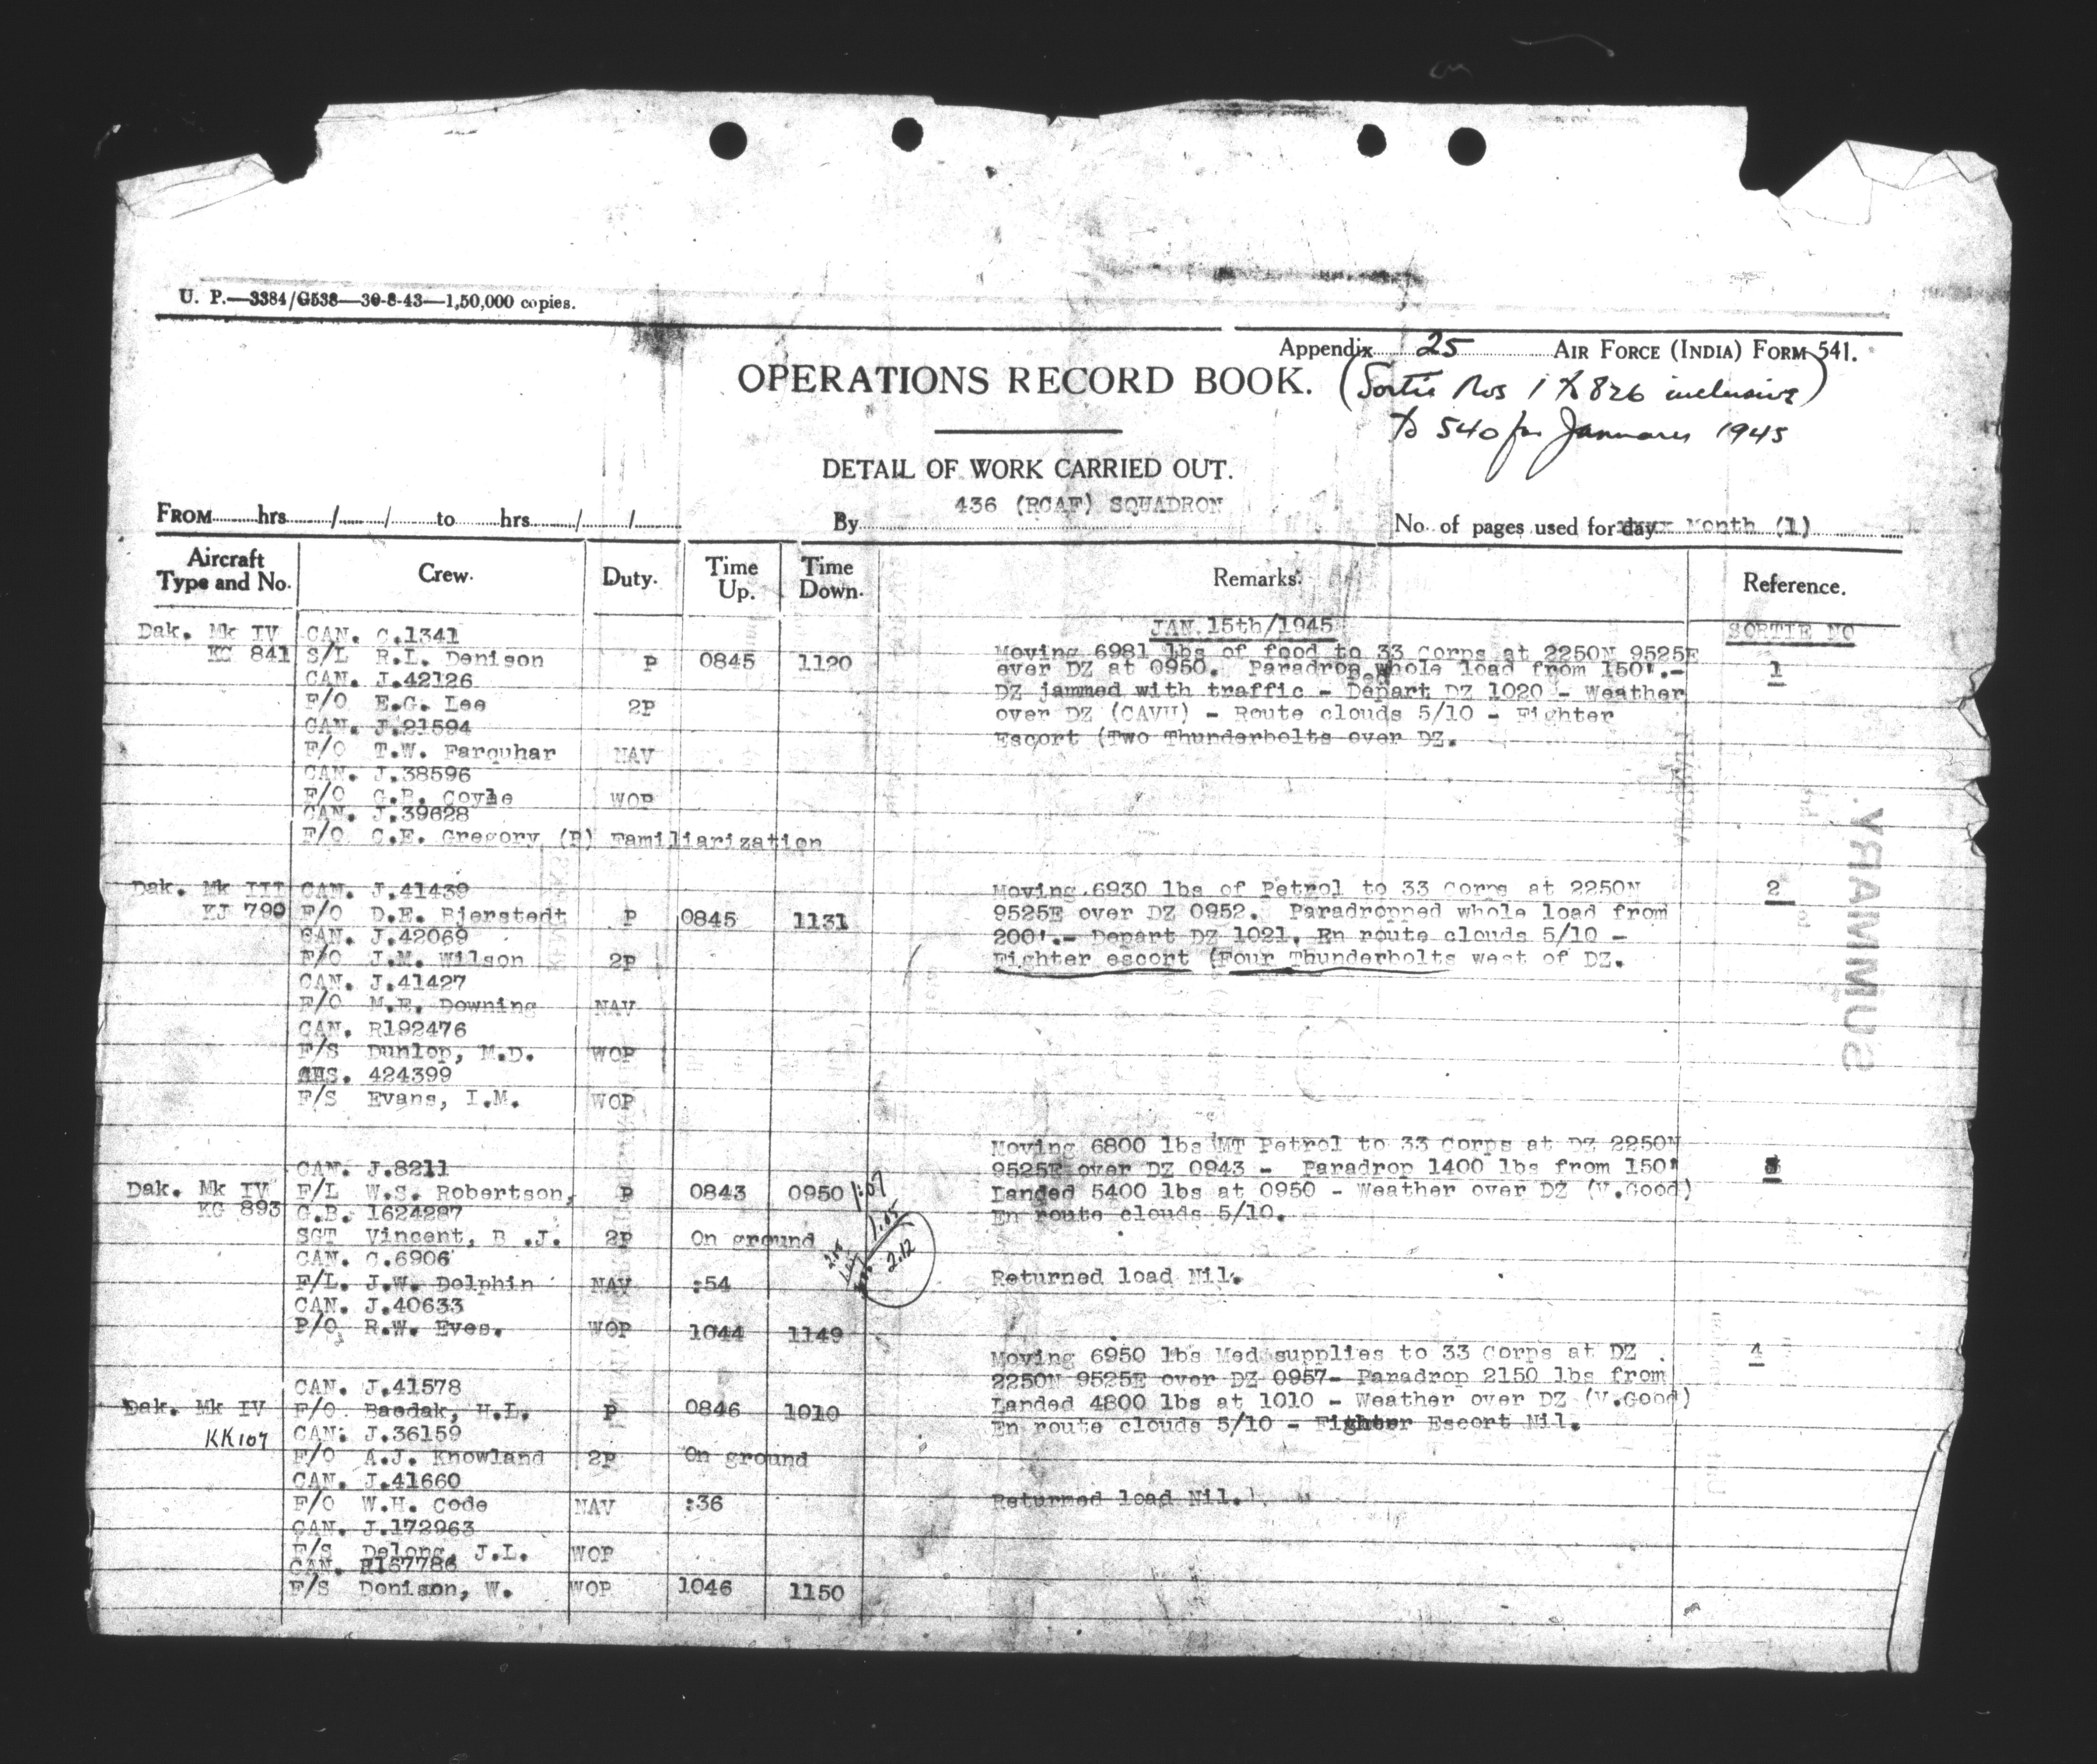 U. P.—3384/G538—30-8-43—1,50,000 copies.
Appendix 25 AIR FORCE (INDIA) FORM 541.
OPERATIONS RECORD BOOK. (Sortie Nos 1 to 826 inclusive)
to 540 for January 1945
DETAIL OF WORK CARRIED OUT.
FROM hrs / / to hrs / / By 436 (RCAF) SQUADRON No. of pages used for day Month (1)
Aircraft Type and No. Crew. Duty. Time Up. Time Down. Remarks. Reference.
JAN. 15th/1945 SORTIE NO
Dak. Mk IV CAN. C.1341
KG 841 S/L R.L. Denison P 0845 1120 Moving 6981 lbs of food to 33 Corps at 2250N 9525E
CAN. J.42126 over DZ at 0950. Paradrop whole load from 150'.- 1
F/O E.G. Lee 2P DZ jammed with traffic - Depart DZ 1020 - Weather
CAN. J.21594 over DZ (CAVU) - Route clouds 5/10 - Fighter
F/O T.W. Farquhar NAV Escort (Two Thunderbolts over DZ.
CAN. J.38596
F/O G.R. Coyle WOP
CAN. J.39628
F/O C.E. Gregory (P) Familiarization
Dak. Mk III CAN. J.41439 Moving 6930 lbs of Petrol to 33 Corps at 2250N 2
KJ 790 F/O D.E. Bjerstedt P 0845 1131 9525E over DZ 0952. Paradropped whole load from
CAN. J.42069 200'.- Depart DZ 1021. En route clouds 5/10 -
F/O J.M. Wilson 2P Fighter escort (Four Thunderbolts west of DZ.
CAN. J.41427
F/O M.E. Downing NAV
CAN. R192476
F/S Dunlop, M.D. WOP
AUS. 424399
F/S Evans, I.M. WOP
Moving 6800 lbs MT Petrol to 33 Corps at DZ 2250N
CAN. J.8211 9525E over DZ 0943 - Paradrop 1400 lbs from 150'
Dak. Mk IV F/L W.S. Robertson, P 0843 0950 1:07 Landed 5400 lbs at 0950 - Weather over DZ (V.Good)
KG 893 G.B. 1624287 1.05 En route clouds 5/10.
SGT Vincent, R.J. 2P On ground 2.12
CAN. C.6906
F/L. J.W. Dolphin NAV :54 Returned load Nil.
CAN. J.40633
P/O R.W. Eves. WOP 1044 1149
Moving 6950 lbs Med supplies to 33 Corps at DZ 4
CAN. J.41578 2250N 9525E over DZ 0957- Paradrop 2150 lbs from
Dak. Mk IV F/O Baedak, H.L. P 0846 1010 Landed 4800 lbs at 1010 - Weather over DZ (V.Good)
KK107 CAN. J.36159 En route clouds 5/10 - Fighter Escort Nil.
F/O A.J. Knowland 2P On ground
CAN. J.41660
F/O W.H. Code NAV :36 Returned load Nil.
CAN. J.172963
F/S Delong, J.L. WOP
CAN. R167786
F/S Donison, W. WOP 1046 1150
SUMMARY